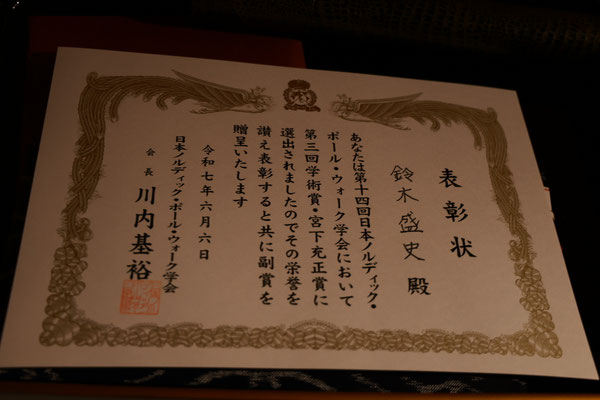 表彰状
鈴木盛史殿
あなたは第十四回日本ノルディック・
ポール・ウォーク学会において
第三回学術賞・宮下充正賞に
選出されましたのでその栄誉を
讃え表彰すると共に副賞を
贈呈いたします
令和七年六月六日
日本ノルディック・ポール・ウォーク学会
会長 川内基裕